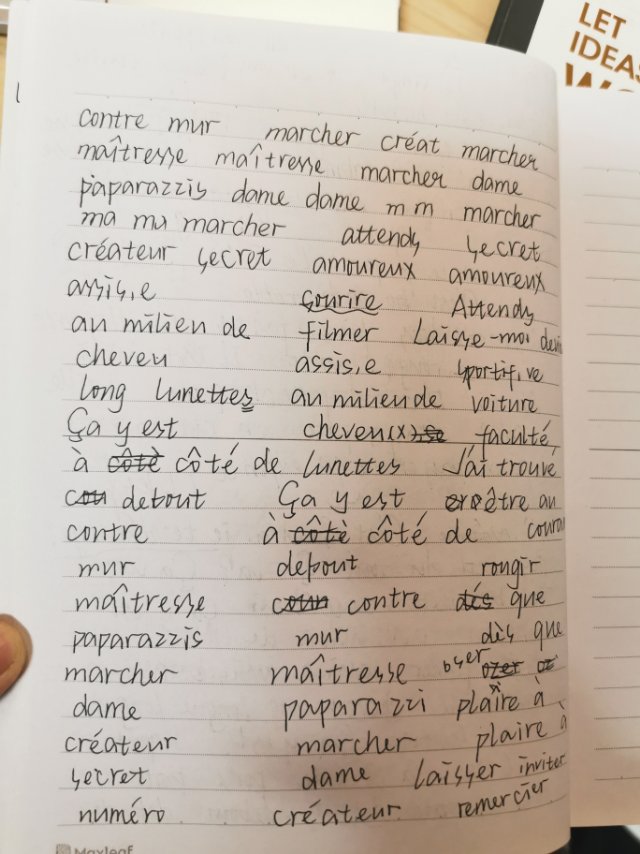 LET
IDEAS
contre mur marcher créat marcher
maîtresse maîtresse marcher dame
paparazzis dame dame m m marcher
ma ma marcher attends secret
créateur secret amoureux amoureux
assis,e sourire Attends
au milieu de filmer Laisse-moi devin
cheveu assis,e sportif,ve
long lunettes au milieu de voiture
Ça y est cheveu(x) faculté
à côtè côté de lunettes J'ai trouvé
cou debout Ça y est être au
contre à côtè côté de couran
mur debout rougir
maîtresse coun contre dés que
paparazzis mur dès que
marcher maîtresse oser ozer oz
dame paparazzi plaire à
créateur marcher plaire à
secret dame laisser inviter
numéro créateur remercier
Maxleaf